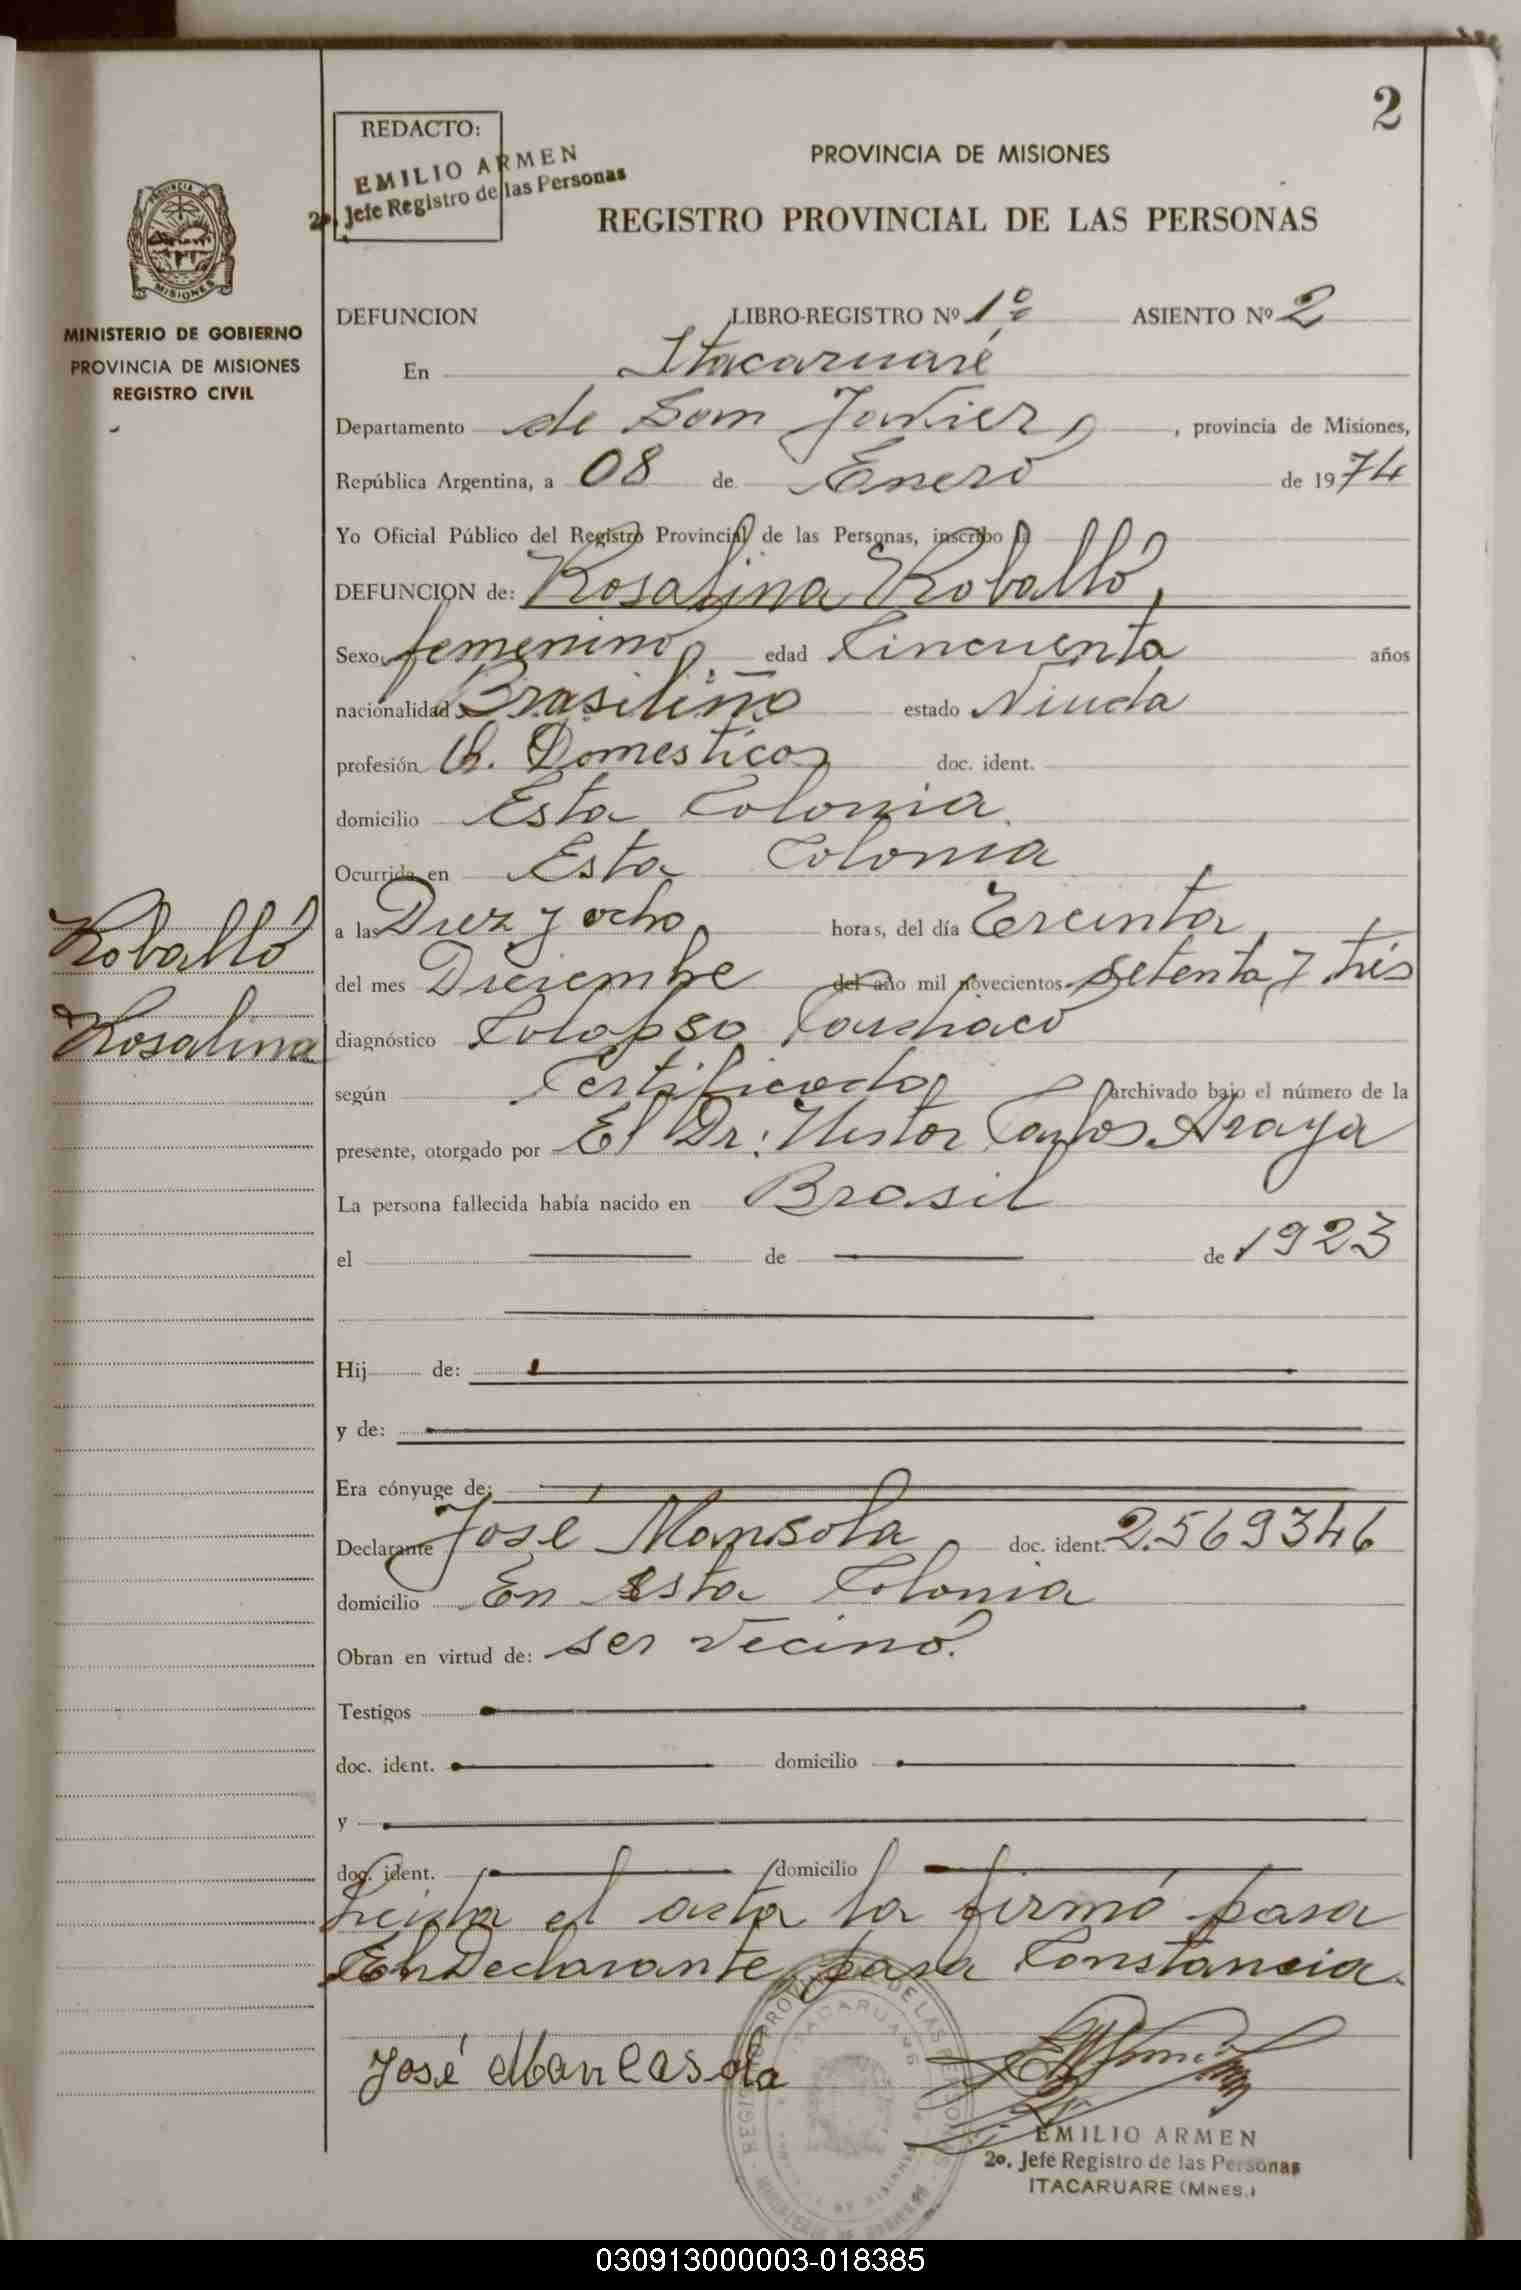 2
REDACTO:
EMILIO ARMEN
2o. Jefe Registro de las Personas
PROVINCIA DE MISIONES
REGISTRO PROVINCIAL DE LAS PERSONAS
PROVINCIA DE
MISIONES
MINISTERIO DE GOBIERNO
PROVINCIA DE MISIONES
REGISTRO CIVIL
DEFUNCION LIBRO-REGISTRO Nº 1º ASIENTO Nº 2
En Itacaruaré
Departamento de San Javier, , provincia de Misiones,
República Argentina, a 08 de Enero de 1974
Yo Oficial Público del Registro Provincial de las Personas, inscribo la
DEFUNCION de: Rosalina Roballó,
Sexo femenino, edad Cincuenta años
nacionalidad Brasileño estado Viuda
profesión Q. Domesticos doc. ident.
domicilio Esta Colonia.
Ocurrida en Esta Colonia
a las Diez y ocho, horas, del día Treinta,
del mes Diciembre del año mil novecientos setenta y trés
diagnóstico Colapso Cardiaco
según Certificado, archivado bajo el número de la
presente, otorgado por El Dr: Nestor Carlos Araya
La persona fallecida había nacido en Brasil
el de de 1923
Hij de:
y de:
Era cónyuge de:
Declarante José Mansola doc. ident. 2.569346
domicilio En esta Colonia
Obran en virtud de: ser vecinó.
Testigos
doc. ident. domicilio
y
doc. ident. domicilio
Leida el acta la firmó para
El Declarante, para Constancia.
Roballó
Rosalina
José Mancasola
REGISTRO PROVINCIAL DE LAS PERSONAS
ITACARUARE
EMILIO ARMEN
2o. Jefe Registro de las Personas
ITACARUARE (MNES.)
030913000003-018385